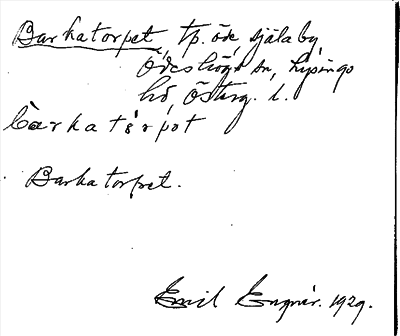 Barkatorpet, tp. öde, Själaby
Ödeshögs sn, Lysings
hd, Österg. l.
bàrkatórpət
Barkatorpet.
Emil Engnér. 1929.